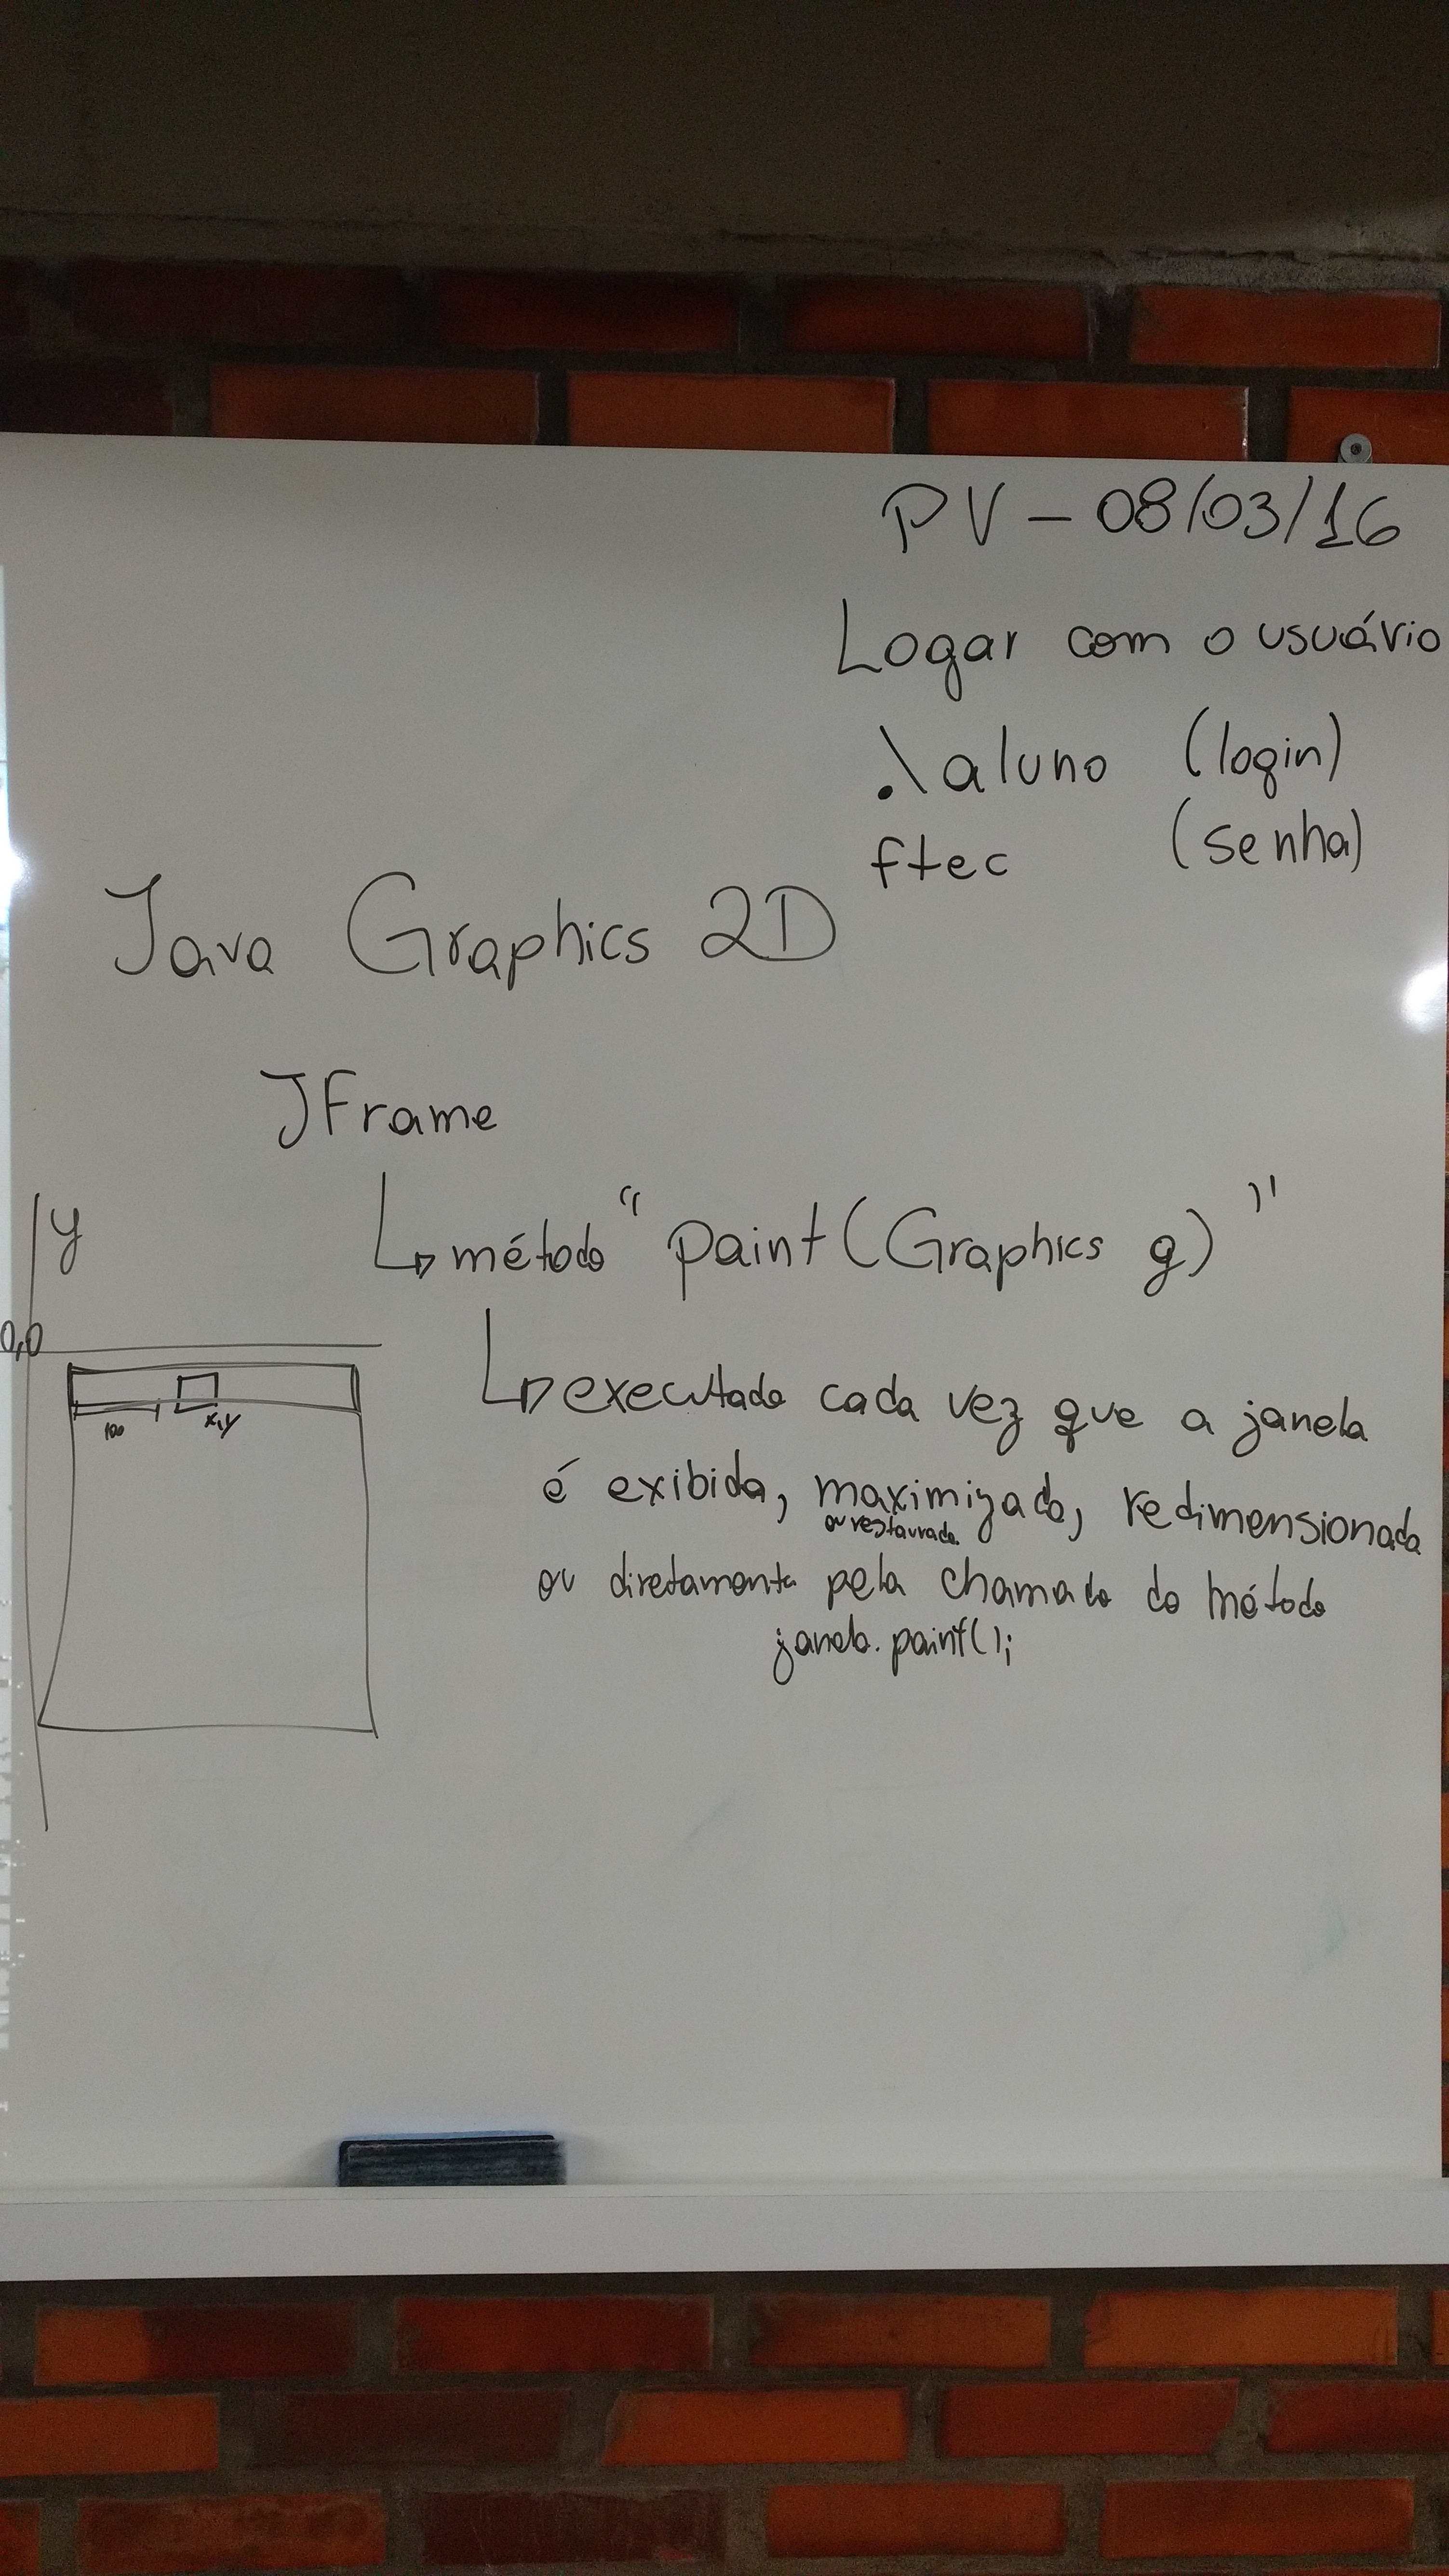 PV - 08/03/16
Logar com o usuário
.\aluno (login)
ftec (senha)
Java Graphics 2D
JFrame
método "paint(Graphics g)"
executado cada vez que a janela
é exibida, maximizada, redimensionada
ou restaurada
ou diretamente pela chamada do método
janela.paint();
y
0,0
100
x,y